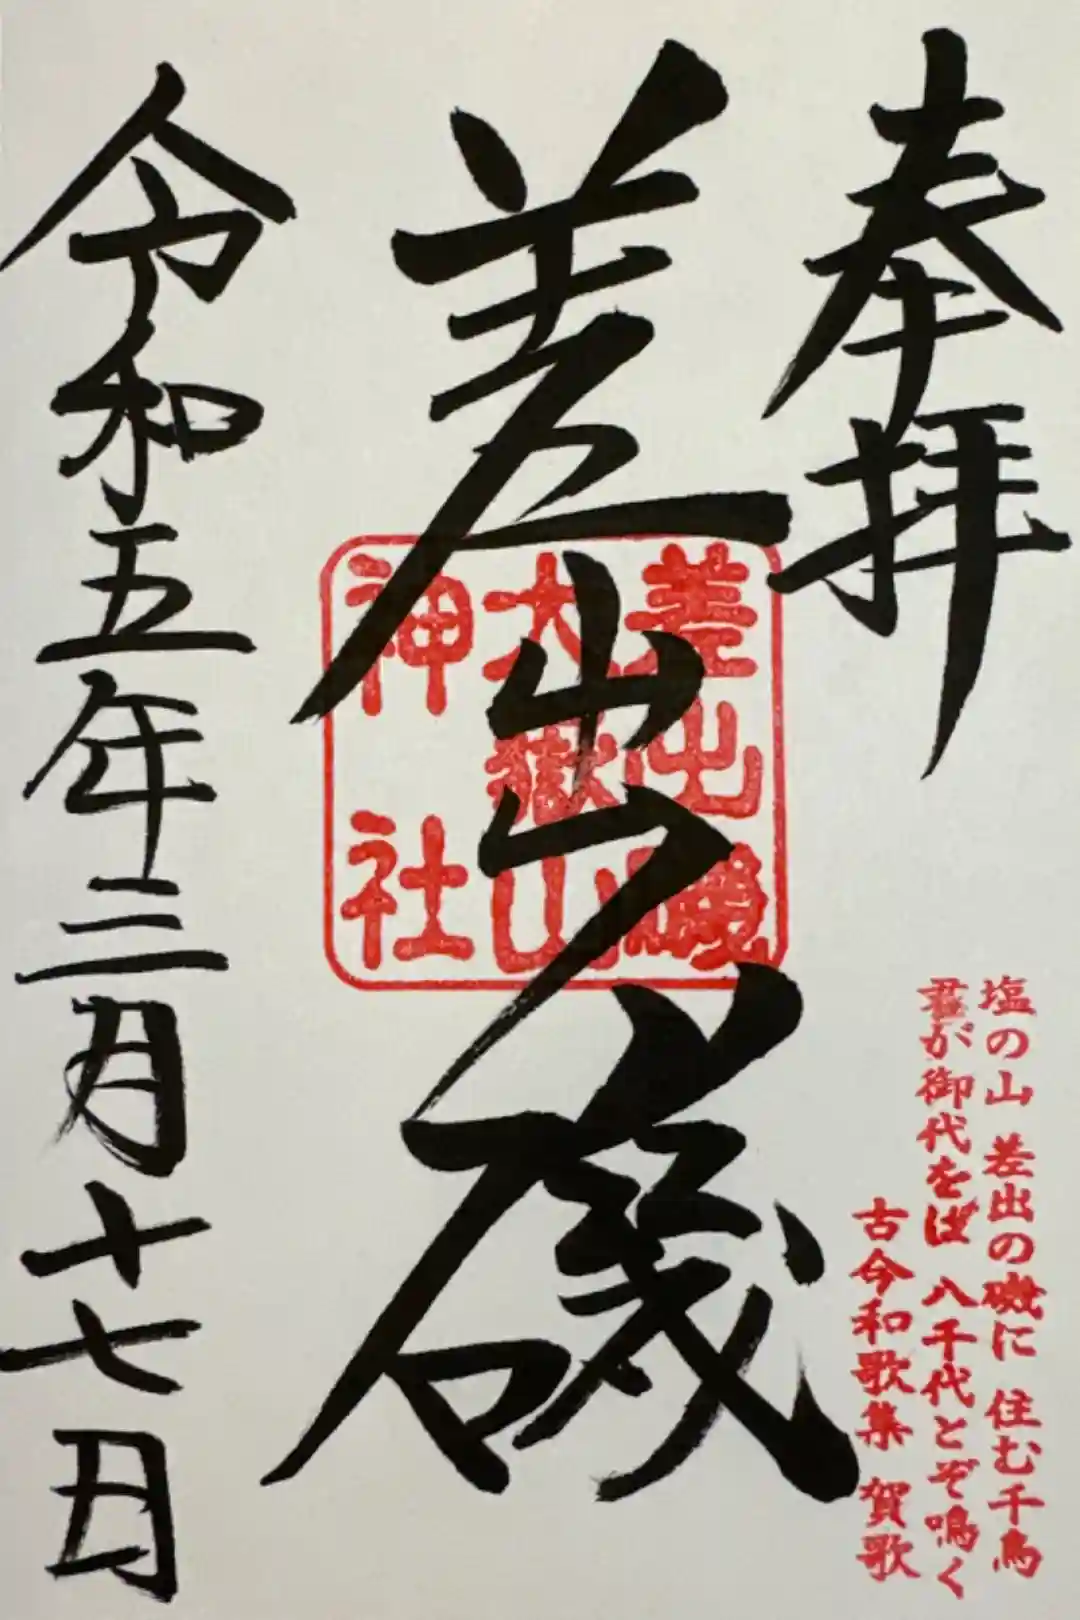 奉拝
差出磯
差出磯
大嶽山
神社
令和五年三月十七日
塩の山 差出の磯に 住む千鳥
君が御代をば 八千代とぞ鳴く
古今和歌集 賀歌